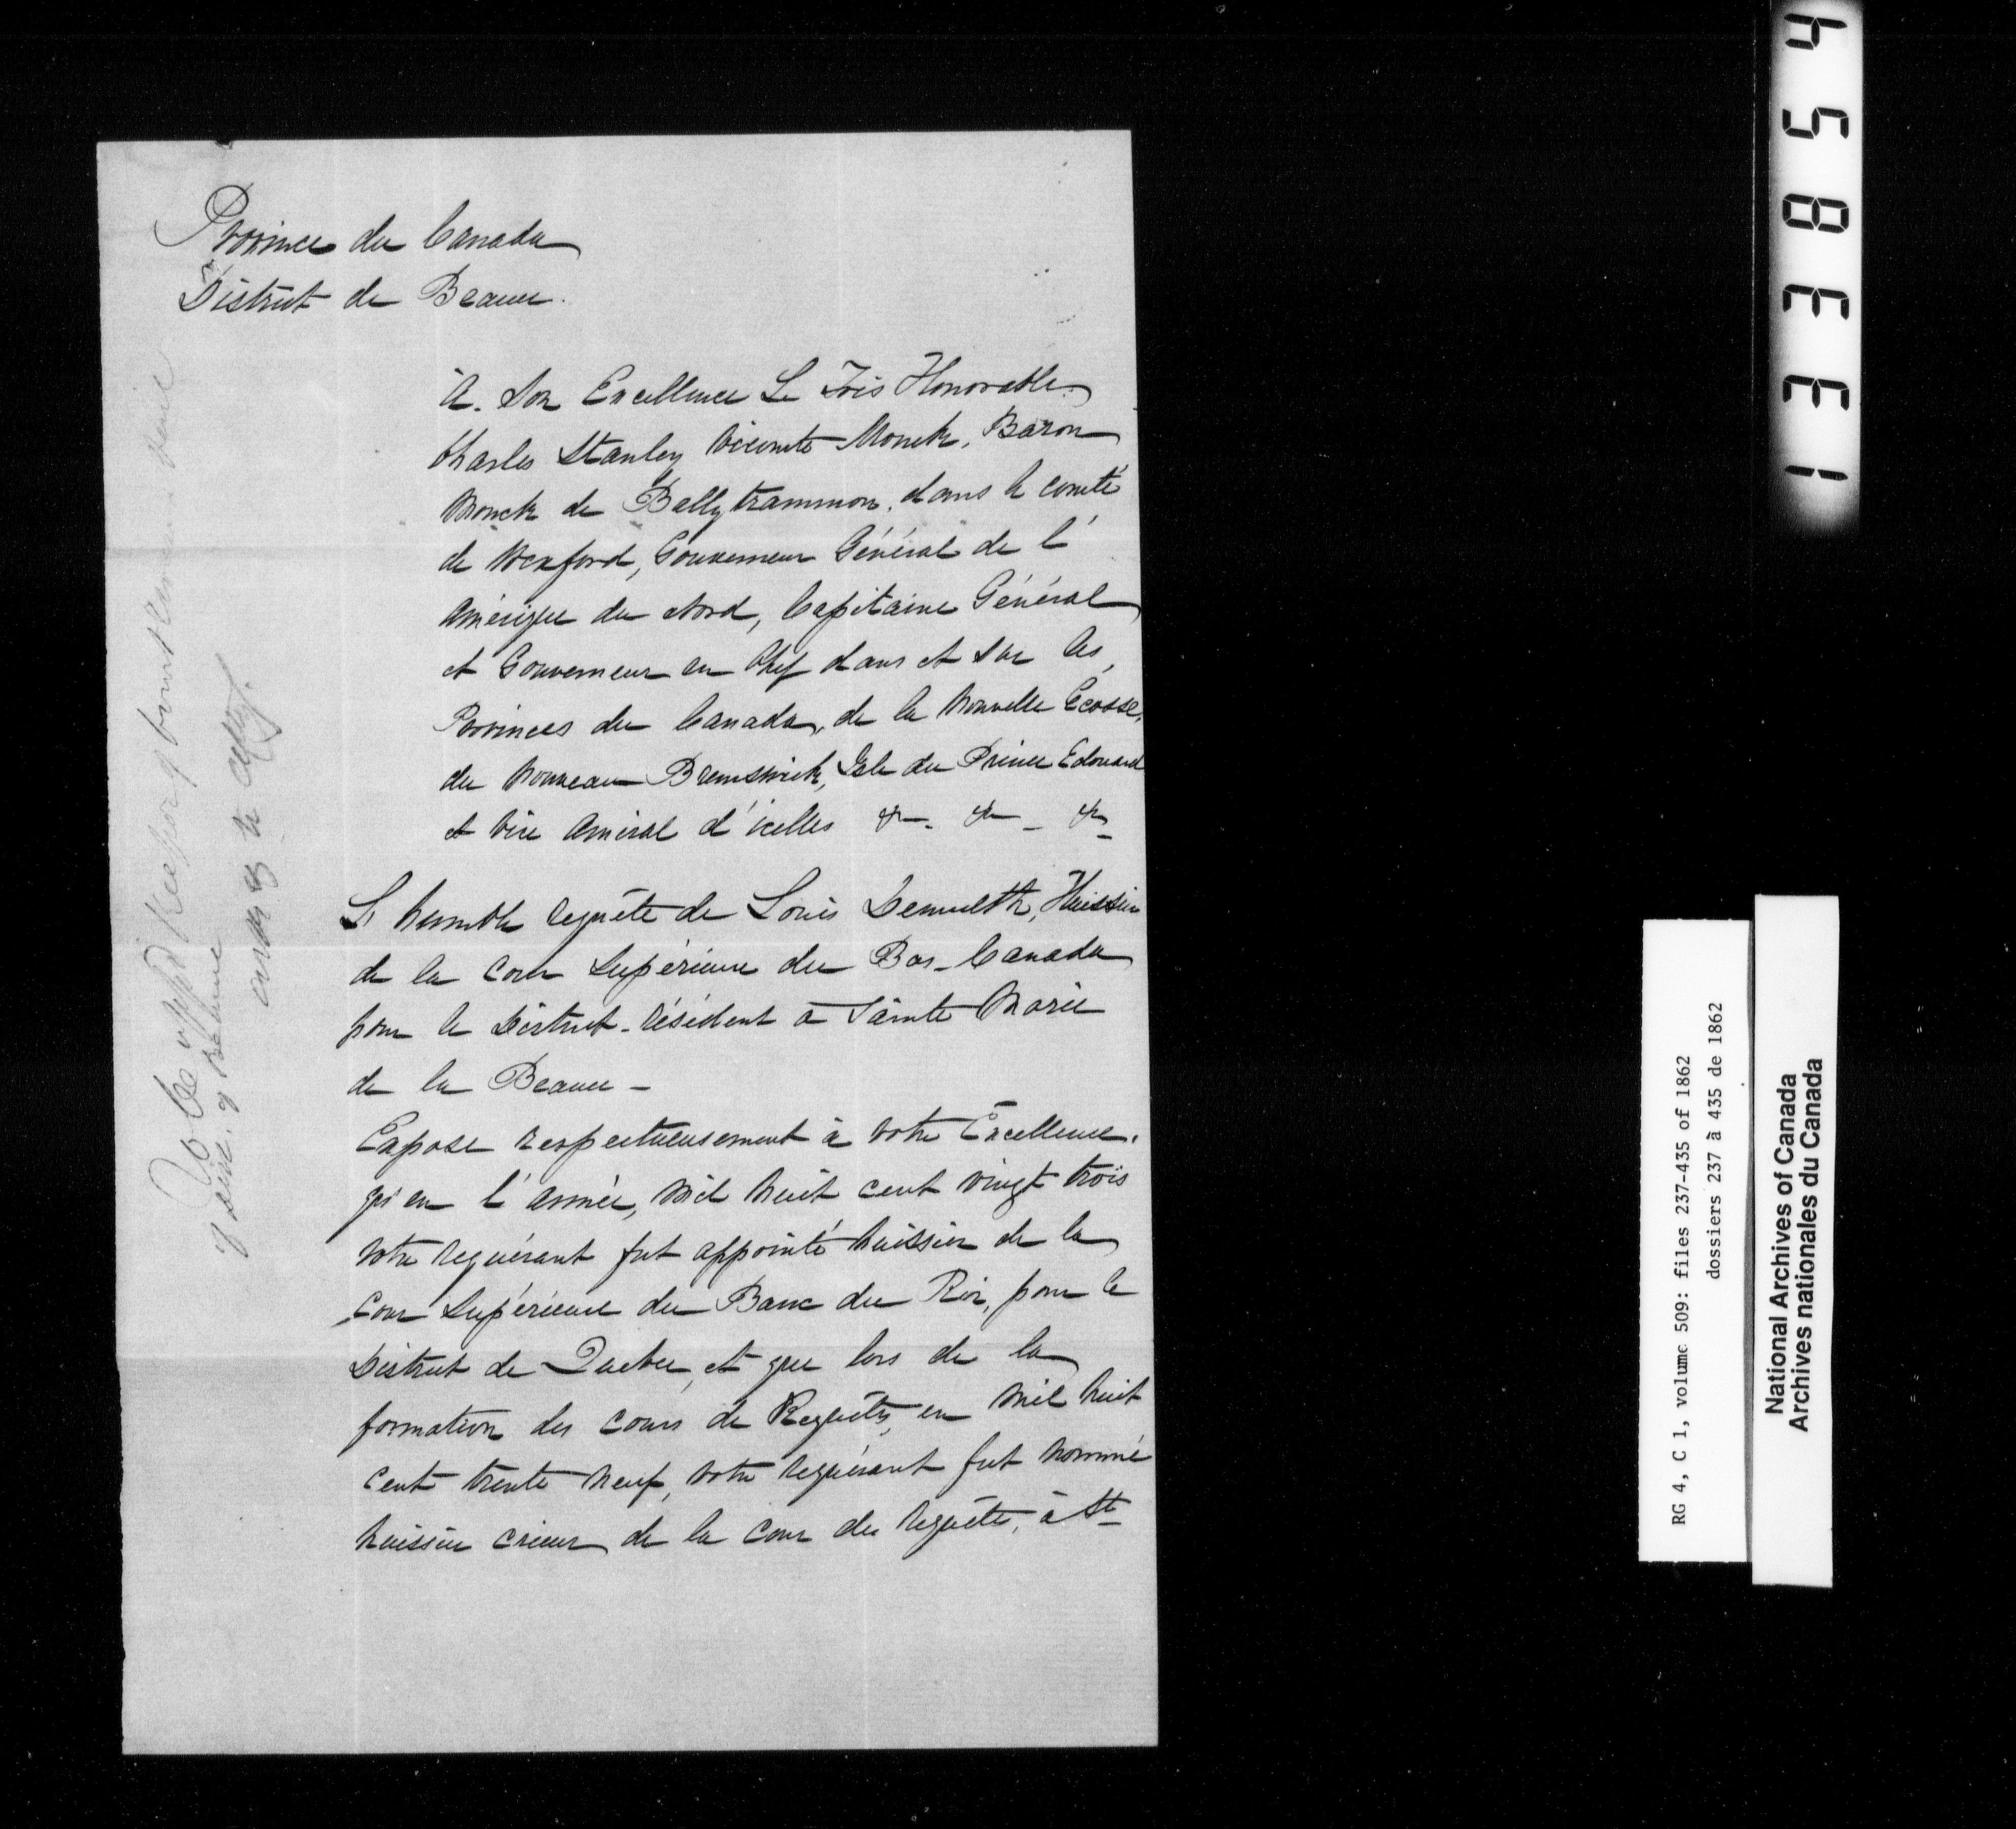 Province du Canada
District de Beauce.
À. Son Excellence Le Très Honorable
Charles Stanley Vicomte Monck, Baron
Monck de Ballytrammon, dans le comté
de Wexford, Gouverneur Général de l'
Amérique du Nord, Capitaine Général
et Gouverneur en Chef dans et sur les
Provinces du Canada, de la Nouvelle Écosse,
du Nouveau Brunswick, Isle du Prince Edouard
et Vice Amiral d'icelles &c. &c. &c.
L'humble requête de Louis Demuelth, Huissier
de la Cour Supérieure du Bas-Canada
pour le District, résident à Sainte Marie
de la Beauce -
Expose respectueusement à Votre Excellence.
qu'en l'année, mil huit cent vingt trois
Votre requérant fut appointé huissier de la
Cour Supérieure du Banc du Roi, pour le
District de Québec, et que lors de la
formation des cours de Requêtes, en mil huit
cent trente neuf, votre requérant fut nommé
huissier crieur de la Cour des requêtes, à Ste
133854
RG 4, C 1, volume 509: files 237-435 of 1862
dossiers 237 à 435 de 1862
National Archives of Canada
Archives nationales du Canada